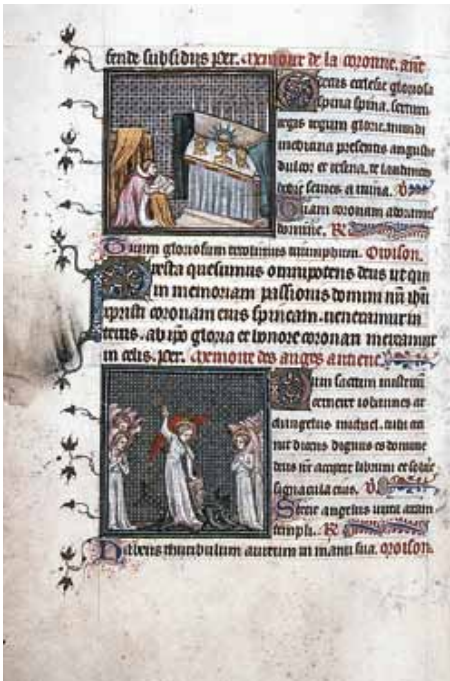 fende subsidiis per. Memoire de la coronne. ant
ecclesie gloriosa
spina spina. sertum
regis regum glorie. mundi
medicina presentis angustie
dulcor et
Quam coronam adoramus
domine. R
Tuum gloriosum recolimus triumphum. Orison.
Presta quesumus omnipotens deus ut qui
in memoriam passionis domini nri ihu
xpristi coronam eius spineam. veneramur in
terris. ab ipo gloria et honore coronari mereamur
in celis. per. Memoire des anges antiene.
Dum sacrum misteriu
cerneret iohannes ar
changelus michael. tuba ce
nit dicens dignus es domine
deus nr accipere librum et solue
signacula eius. V
Stetit angelus iuxta aram
templi. R
Habens thuribulum aureum in manu sua. oroison.